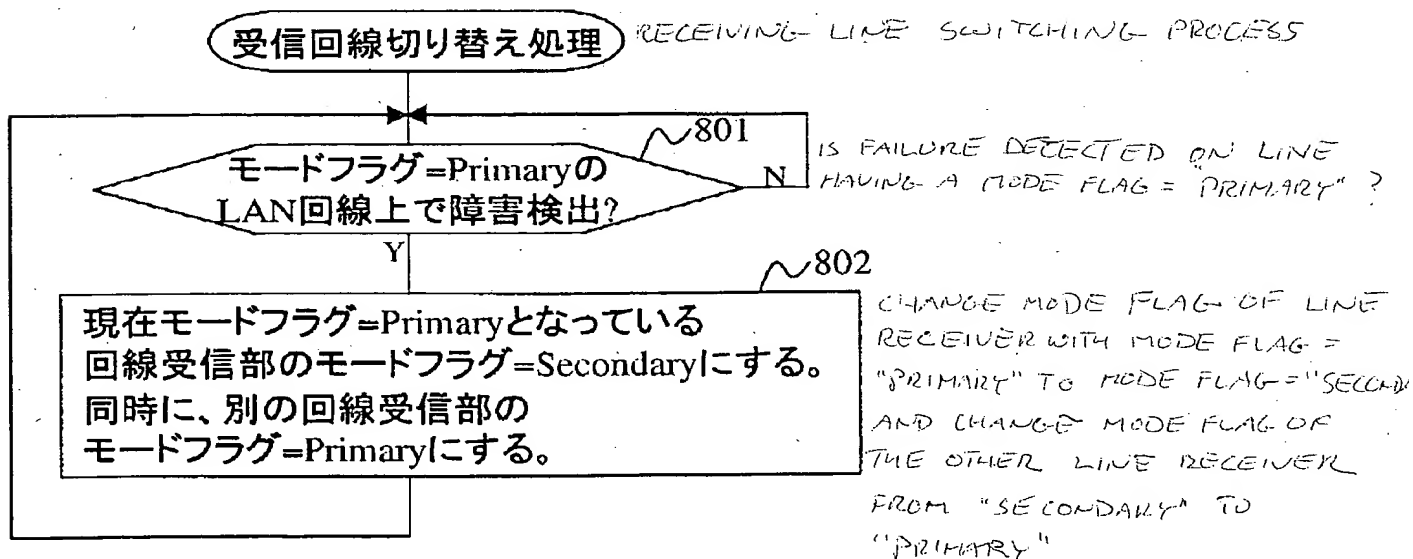 受信回線切り替え処理
RECEIVING LINE SWITCHING PROCESS
801
モードフラグ=Primaryの
LAN回線上で障害検出?
N
IS FAILURE DETECTED ON LINE
HAVING A MODE FLAG = "PRIMARY" ?
Y
802
現在モードフラグ=Primaryとなっている
回線受信部のモードフラグ=Secondaryにする。
同時に、別の回線受信部の
モードフラグ=Primaryにする。
CHANGE MODE FLAG OF LINE
RECEIVER WITH MODE FLAG =
"PRIMARY" TO MODE FLAG = "SECOND
AND CHANGE MODE FLAG OF
THE OTHER LINE RECEIVER
FROM "SECONDARY" TO
"PRIMARY"